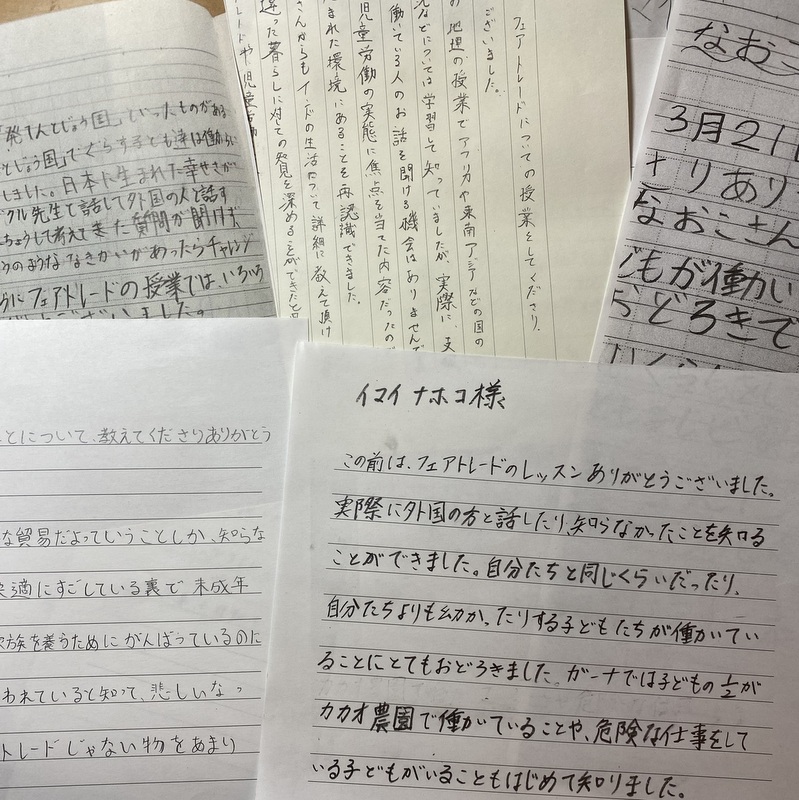 発てん とじょう国」といったものがある
とじょう国」でくらす子ども達は働から
しました。日本に生まれた幸せさが
クル先生と話して外国の人と話す
ちょうして考えてきた質問が聞けず
うのようななきかいがあったらチャレンジ
らにフェアトレードの授業では、いろいろ
フェアトレードについての授業をしてくださり、
ございました。
の地理の授業でアフリカや東南アジアなどの国の
況などについては学習して知っていましたが、実際に、支
働いている人のお話を聞ける機会はありませんで
児童労働の実態に焦点を当てた内容だったので
まれた環境にあることを再認識できました。
さんからもインドの生活について詳細に教えて頂け
違った暮らしに対しての発見を深めることができたと
レードや児童労働
なおこ
3月21日
りあり
なおこさん
どもが働い
どろきで
とについて、教えてくださりありがとう
な貿易だよっていうことしか、知らな
快適にすごしている裏で未成年
家族を養うためにがんばっているのに
われていると知って、悲しいなっ
トレードじゃない物をあまり
イマイ ナホコ様
この前は、フェアトレードのレッスンありがとうございました。
実際に外国の方と話したり、知らなかったことを知る
ことができました。自分たちと同じくらいだったり、
自分たちよりも幼かったりする子どもたちが働いてい
ることにとてもおどろきました。ガーナでは子どもの1/2が
カカオ農園で働いていることや、危険な仕事をして
いる子どもがいることもはじめて知りました。